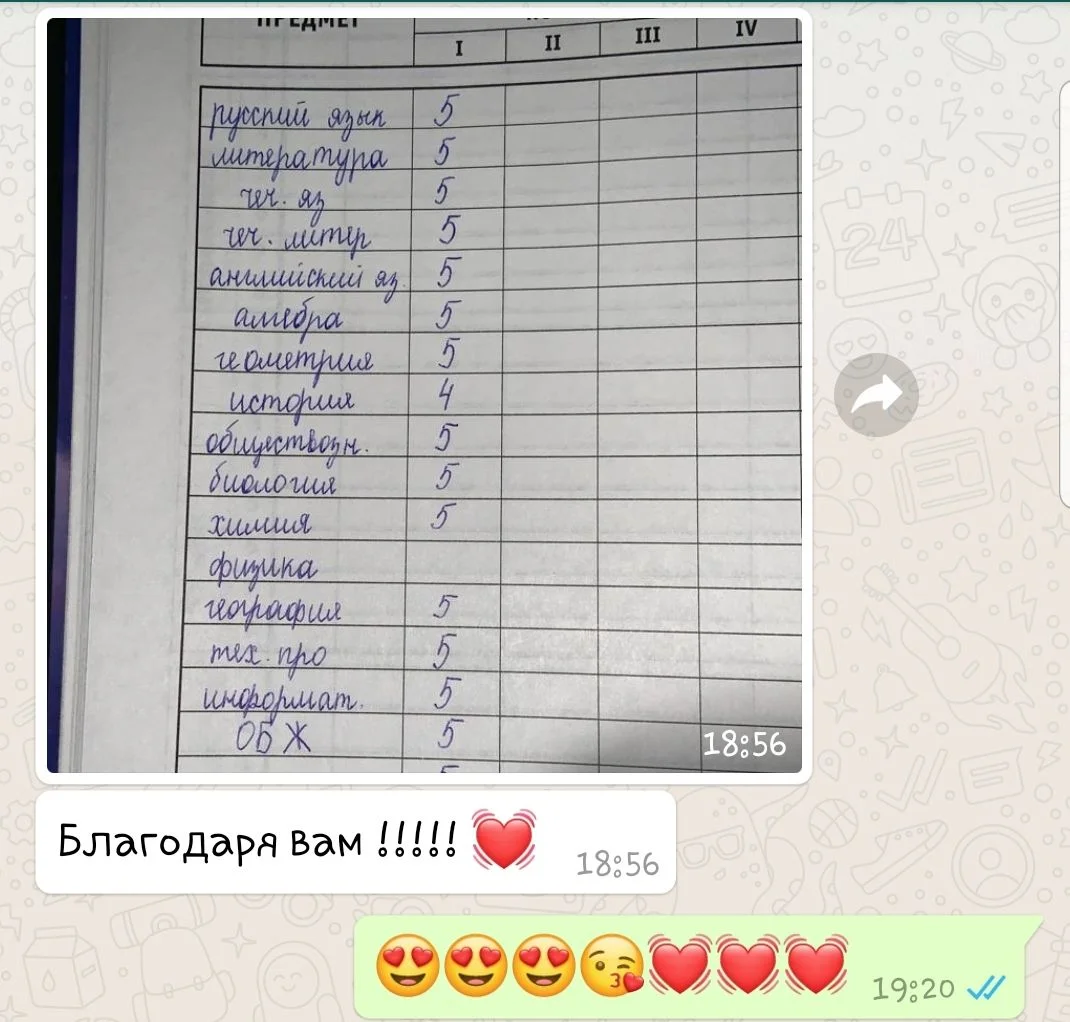 ПРЕДМЕТ
I II III IV
русский язык 5
литература 5
чеч. яз 5
чеч. литер 5
английский яз. 5
алгебра 5
геометрия 5
история 4
обществозн. 5
биология 5
химия 5
физика
география 5
тех. про 5
информат. 5
ОБЖ 5
18:56
Благодаря вам !!!!! 💓
18:56
😍😍😍😘💓💓💓
19:20
24